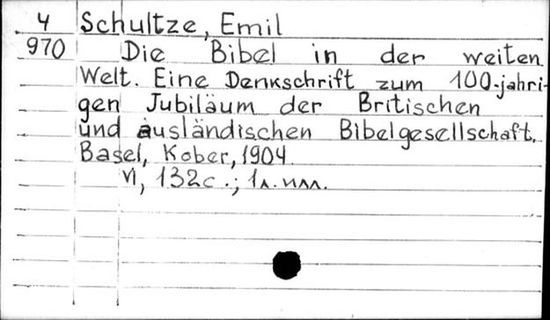 4 Schultze, Emil
970 Die Bibel in der weiten
Welt. Eine Denkschrift zum 100-jahri-
gen Jubiläum der Britischen
und ausländischen Bibelgesellschaft.
Basel, Kober, 1904.
VI, 132с.; 1л. илл.